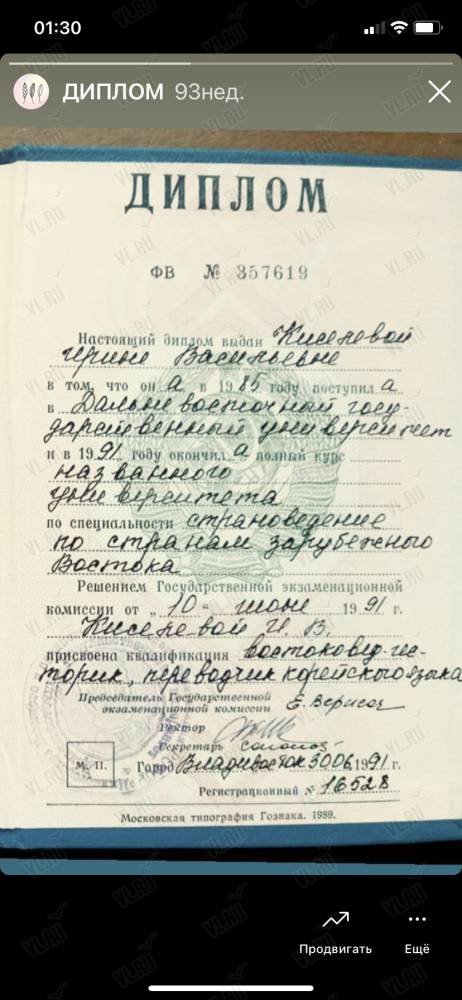 01:30
ДИПЛОМ 93нед.
ДИПЛОМ
ФВ № 357619
Настоящий диплом выдан Киселевой
Ирине Васильевне
в том, что он а в 1985 году поступил а
в Дальневосточный госу-
дарственный университет
и в 1991 году окончил а полный курс
названного
университета
по специальности страноведение
по странам зарубежного
Востока
Решением Государственной экзаменационной
комиссии от „10" июня 1991 г.
Киселевой И. В.
присвоена квалификация востоковед-ис-
торик, переводчик корейского языка
Председатель Государственной
экзаменационной комиссии
Ректор
Секретарь
М. П.
Город Владивосток 30 06 1991 г.
Регистрационный № 16528
Московская типография Гознака. 1989.
Продвигать Ещё
VL.RU